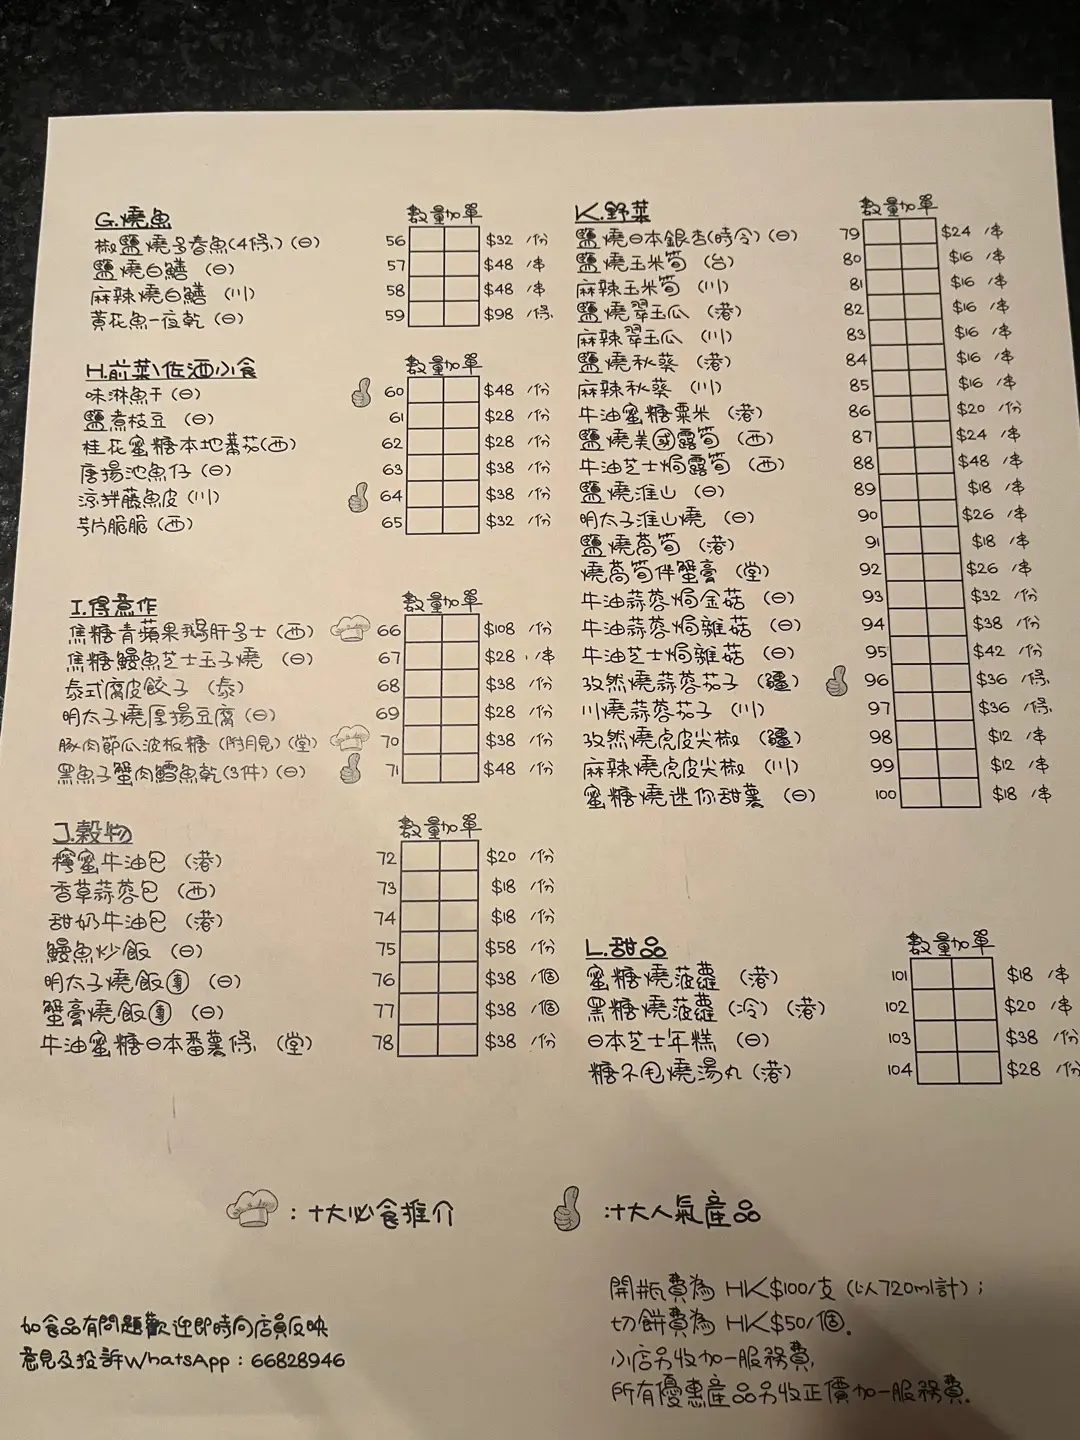 G.燒魚 數量加單
椒鹽燒多春魚(4條)(日) 56 $32 /份
鹽燒白鱔 (日) 57 $48 /串
麻辣燒白鱔 (川) 58 $48 /串
黃花魚一夜乾 (日) 59 $98 /條
H.前菜\佐酒小食 數量加單
味淋魚干 (日) 60 $48 /份
鹽煮枝豆 (日) 61 $28 /份
桂花蜜糖本地蕃茄(西) 62 $28 /份
唐揚池魚仔 (日) 63 $38 /份
涼拌藤魚皮 (川) 64 $38 /份
芋片脆脆 (西) 65 $32 /份
I.得意作 數量加單
焦糖青蘋果鵝肝多士 (西) 66 $108 /份
焦糖鰻魚芝士玉子燒 (日) 67 $28 /串
泰式腐皮餃子 (泰) 68 $38 /份
明太子燒厚揚豆腐 (日) 69 $28 /份
豚肉節瓜波板糖 (附月見) (堂) 70 $38 /份
黑魚子蟹肉鱈魚乾(3件) (日) 71 $48 /份
J.穀物 數量加單
檸蜜牛油包 (港) 72 $20 /份
香草蒜蓉包 (西) 73 $18 /份
甜奶牛油包 (港) 74 $18 /份
鰻魚炒飯 (日) 75 $58 /份
明太子燒飯團 (日) 76 $38 /個
蟹膏燒飯團 (日) 77 $38 /個
牛油蜜糖日本番薯條 (堂) 78 $38 /份
K.野菜 數量加單
鹽燒日本銀杏(時令)(日) 79 $24 /串
鹽燒玉米筍 (台) 80 $16 /串
麻辣玉米筍 (川) 81 $16 /串
鹽燒翠玉瓜 (港) 82 $16 /串
麻辣翠玉瓜 (川) 83 $16 /串
鹽燒秋葵 (港) 84 $16 /串
麻辣秋葵 (川) 85 $16 /串
牛油蜜糖粟米 (港) 86 $20 /份
鹽燒美國露筍 (西) 87 $24 /串
牛油芝士焗露筍 (西) 88 $48 /串
鹽燒淮山 (日) 89 $18 /串
明太子淮山燒 (日) 90 $26 /串
鹽燒萵筍 (港) 91 $18 /串
燒萵筍伴蟹膏 (堂) 92 $26 /串
牛油蒜蓉焗金菇 (日) 93 $32 /份
牛油蒜蓉焗雜菇 (日) 94 $38 /份
牛油芝士焗雜菇 (日) 95 $42 /份
孜然燒蒜蓉茄子 (疆) 96 $36 /條
川燒蒜蓉茄子 (川) 97 $36 /條
孜然燒虎皮尖椒 (疆) 98 $12 /串
麻辣燒虎皮尖椒 (川) 99 $12 /串
蜜糖燒迷你甜薯 (日) 100 $18 /串
L.甜品 數量加單
蜜糖燒菠蘿 (港) 101 $18 /串
黑糖燒菠蘿 (冷) (港) 102 $20 /串
日本芝士年糕 (日) 103 $38 /份
糖不甩燒湯丸 (港) 104 $28 /份
：十大必食推介
：十大人氣產品
如食品有問題歡迎即時向店員反映
意見及投訴WhatsApp：66828946
開瓶費為 HK$100/支 (以720ml計)；
切餅費為 HK$50/個。
小店另收加一服務費，
所有優惠產品另收正價加一服務費。